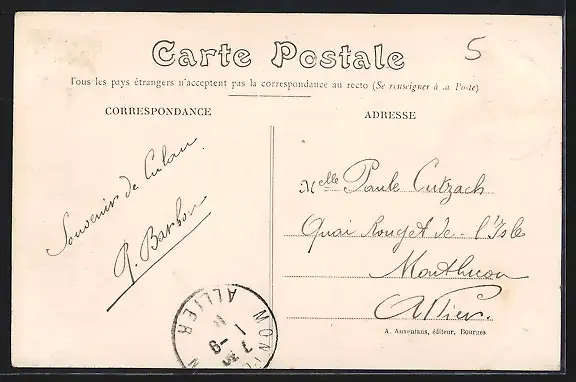 Carte Postale
5
Tous les pays étrangers n'acceptent pas la correspondance au recto (Se renseigner à la Poste)
CORRESPONDANCE
ADRESSE
Souvenir de Culan.
Barbon
Melle Paule Cutzach
Quai Rouget de l'Isle
Montluçon
Allier.
ALLIER
A. Auxenfans, éditeur, Bourges